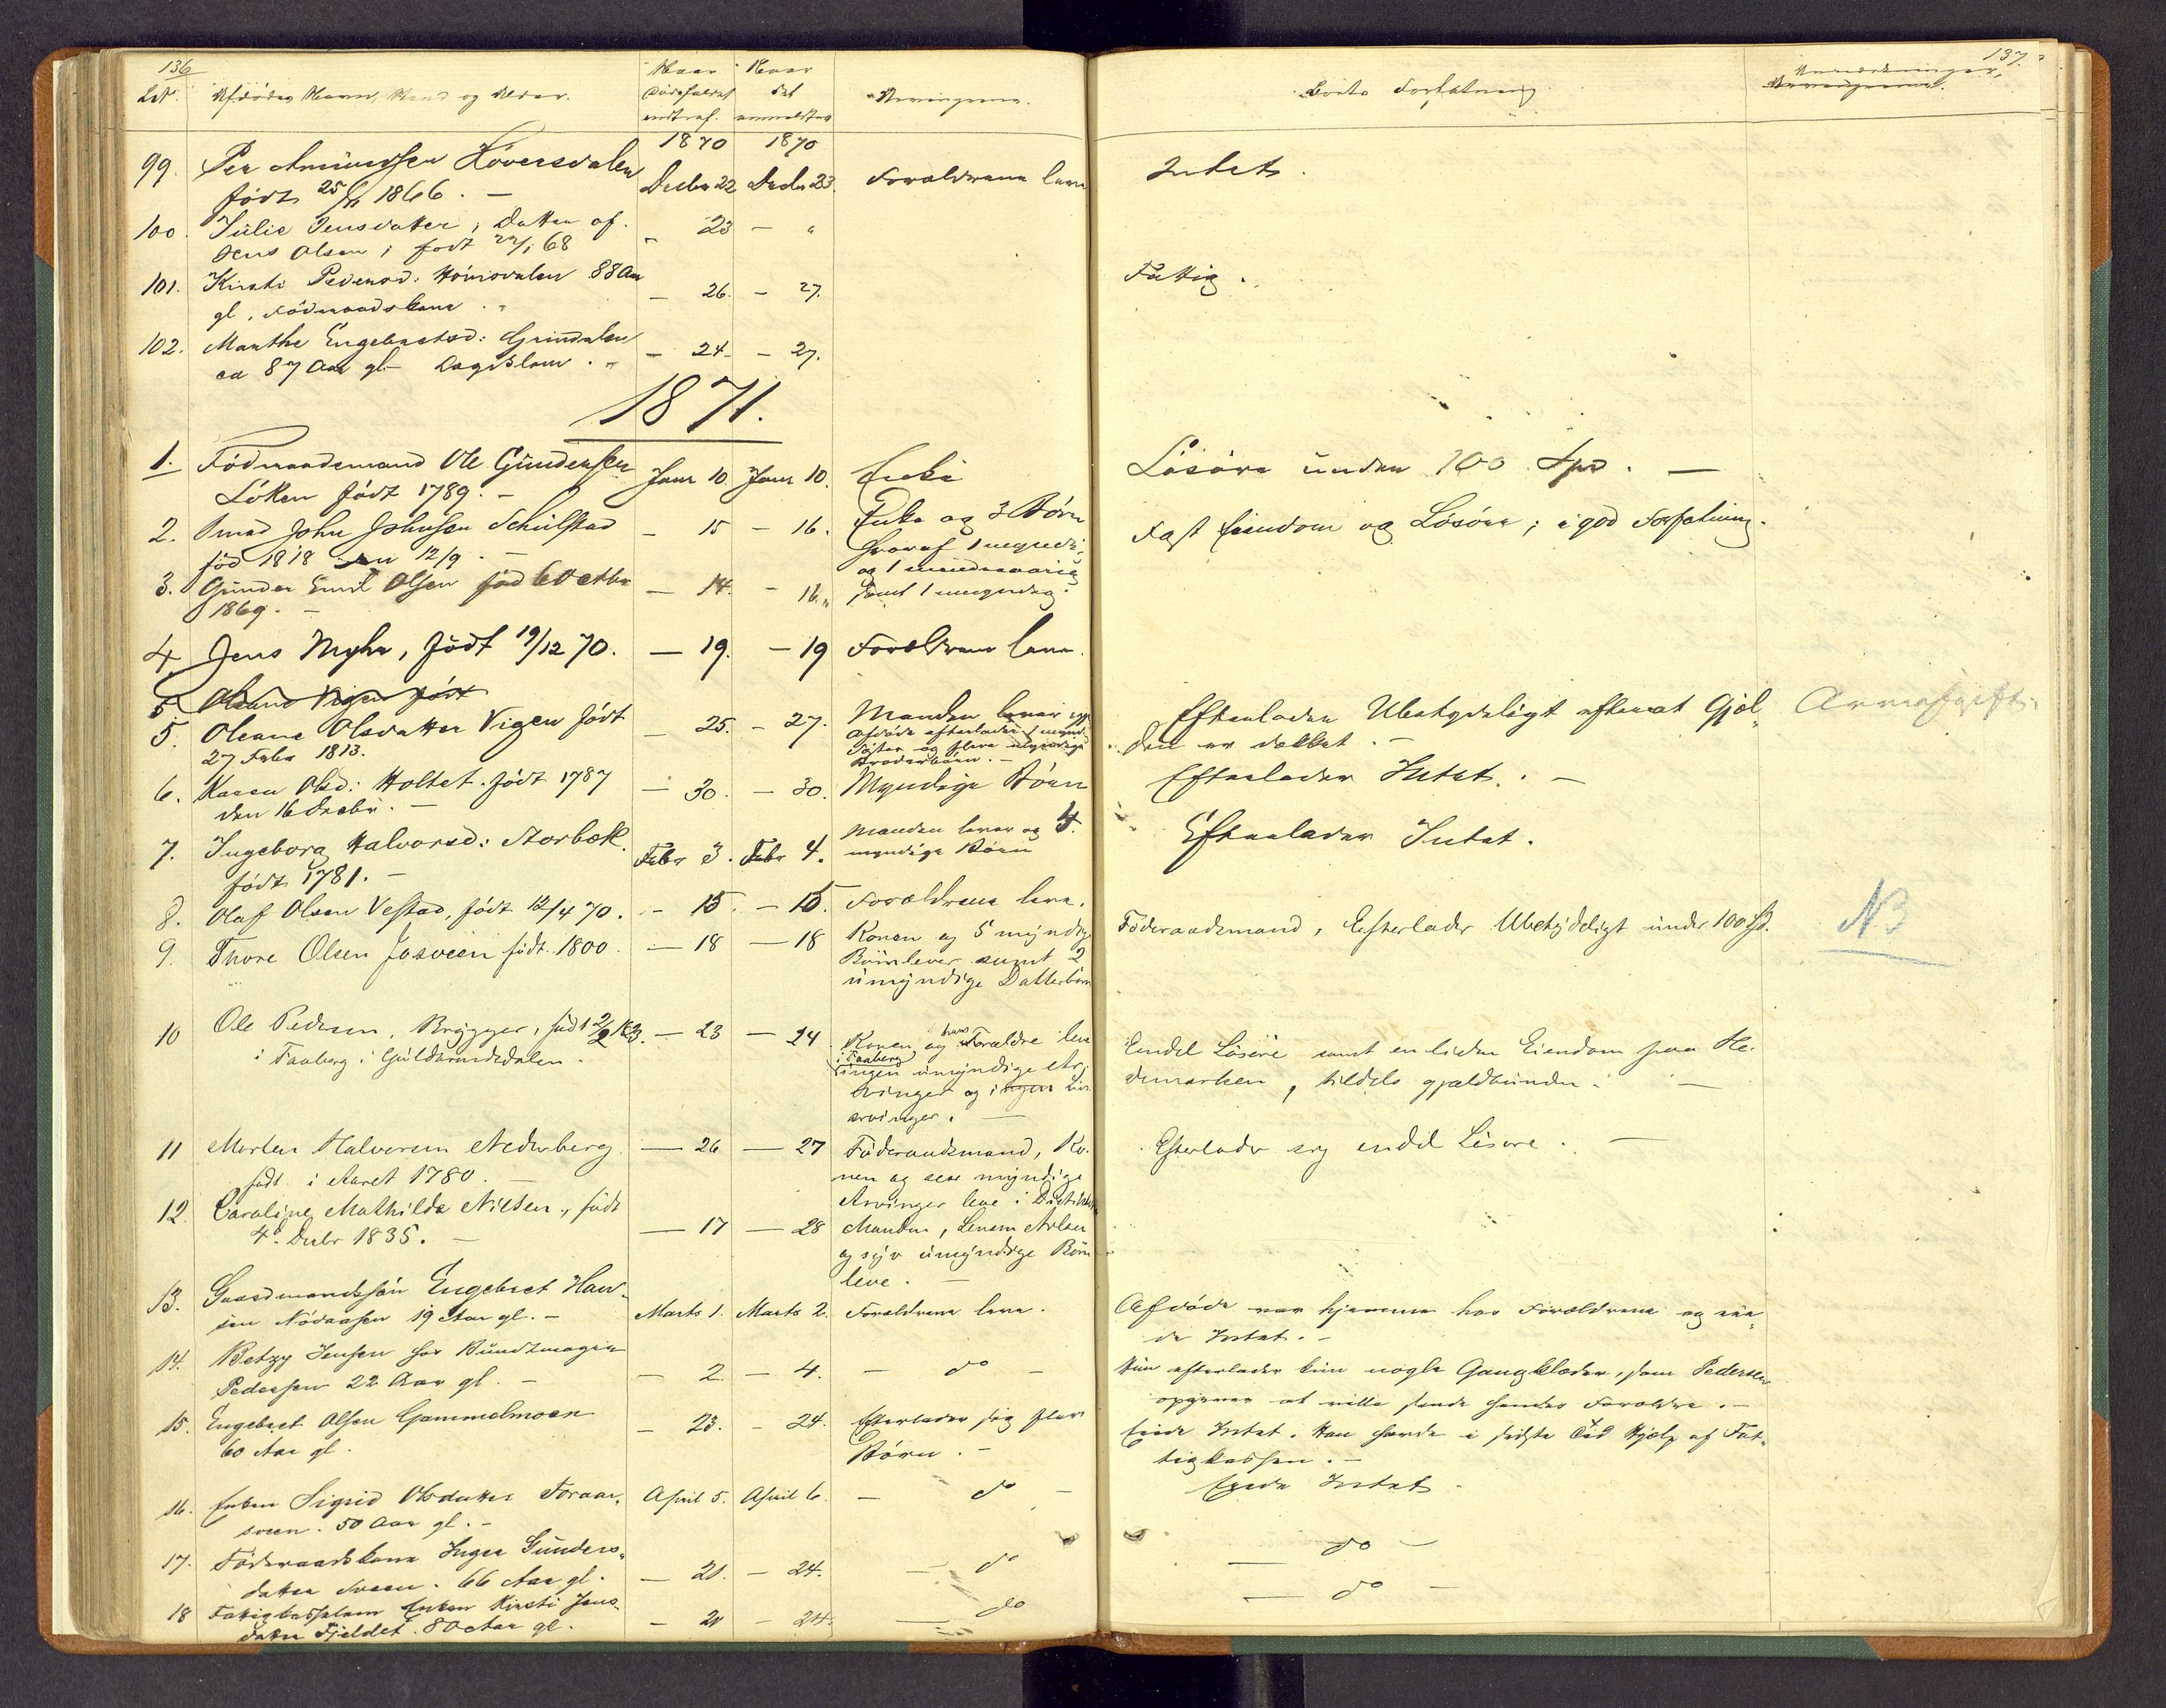 136
Lit. Afdødes Navn, Stand og Alder.
Naar Dødsfaldet indtraf.
Naar det anmeldtes
Arvingerne.
1870 1870
99. Per Amundsen Hoversdalen Decbr 22 Decbr 23. Forældrene leve
født 25/ 1866. —
100. Julie Jensdatter, Datter af - 23 - "
Jens Olsen; født 22/1 68
101. Kirsti Pedersd: 88 Aar - 26. - 27.
gl, Föderaadskone.
102. Marthe Engebretsd: Grindalen - 24 - 27.
ca 87 Aar gl - Lægdslem.
1871.
1. Födraadsmand Ole Gundersen Janr 10 Janr 10. Enke
Löken født 1789. -
2. Smed John Johnsen Schulstad - 15 - 16. Enke og 3 Börn
föd 1818 den 12/9. - hvoraf 1 myndig,
og 1 mindreaarig
3. Gunder Emil Olsen föd 6 Octbr - 14. - 16. samt 1 umyndig.
1869. -
4 Jens Myhr, födt 19/12 70. - 19. - 19 Forældrene leve.
5 Oleane Vigen født
5. Oleane Olsdatter Vigen født - 25. - 27. Manden lever
27 Febr 1813. Afdøde efterlader 1 myndig
Søster og flere myndige
Broderbørn. -
6. Karen Olsd: Holtet. født 1787 - 30. - 30. Myndige Börn
den 16 Decbr. -
7. Ingeborg Halvorsd: Storbæk. Febr 3. Febr 4. Manden lever og 4.
født 1781. - myndige Börn
8. Olaf Olsen Vestad, født 12/4 70. - 15. - 15. Forældrene leve.
9. Thore Olsen Josveen født 1800. - 18 - 18 Konen og 5 myndige
Börn lever samt 2
umyndige Datterbörn
10 Ole Pedersen, Brygger, født 2/2 - 23 - 24 Konen og hans Forældre leve
i Faaberg i Guldbrandsdalen. i Faaberg
ingen umyndige Ar-
vinger og ingen Livs-
arvinger. -
11 Morten Halvorsen Nederberg. - 26 - 27 Föderaadsmand, Ko-
født i Aaret 1780. - nen og sex myndige
Arvinger leve i Distriktet
12. Caroline Mathilde Nielsen, født - 17 - 28 Manden,
4. Decbr 1835. - og syv umyndige Börn
leve. -
13. Gaardmandssön Engebret Han- Marts 1. Marts 2. Forældrene leve.
sen Nödaasen 19 Aar gl. -
14. Betzy Jensen hos Bundtmager - 2. - 4. - do -
Pedersen 22 Aar gl. -
15. Engebret Olsen Gammelmoen - 23. - 24. Efterlader sig flere
60 Aar gl. Börn. -
16. Enken Sigrid Olsdatter Foraar- April 5. April 6. - do -
sveen. 50 Aar gl. -
17. Föderaadskone Inger Gunders- - 21. - 24. - do
datter Sveen. 66 Aar gl.
18 Fattigkasselem Enken Kirsti Jens- - 21 - 24. - do
datter Fjeldet. 80 Aar gl.
137.
Boets Forfatning.
Anmærkninger.
Arvingerne.
Intet.
Fattig.
Lösöre under 100 Spd. -
Fast Eiendom og Lösöre; i god Forfatning.
Efterlader Ubetydeligt efterat Gjæl- Armafgift.
den er dækket. -
Efterlader Intet. -
Efterlader Intet.
Föderaadsmand, Efterlader Ubetydeligt under 100 Spd. NB
Endel Lösöre samt en liden Eiendom paa He-
demarken, tildels gjældbunden. -
Efterlader sig endel Lösöre. -
Afdöde var hjemme hos Forældrene og eie-
de Intet. -
Hun efterlader kun nogle Gangklæder, som Pedersen
opgiver at ville sende hendes Forældre. -
Eiede Intet. Han havde i sidste Tid Hjælp af Fat-
tigkassen. -
Eiede Intet -
- do -
- do -